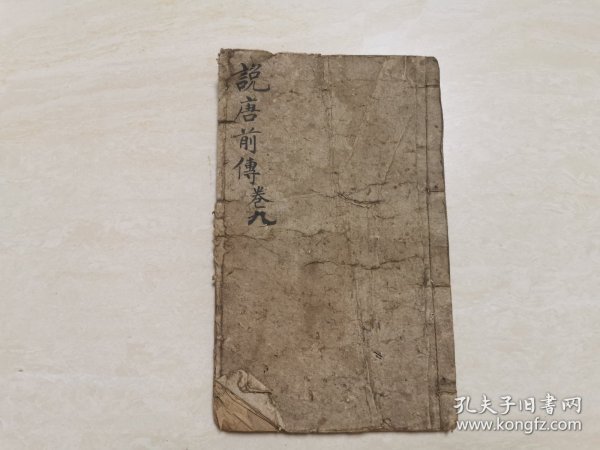 說唐前傳卷九
孔夫子旧書网
www.kongfz.com